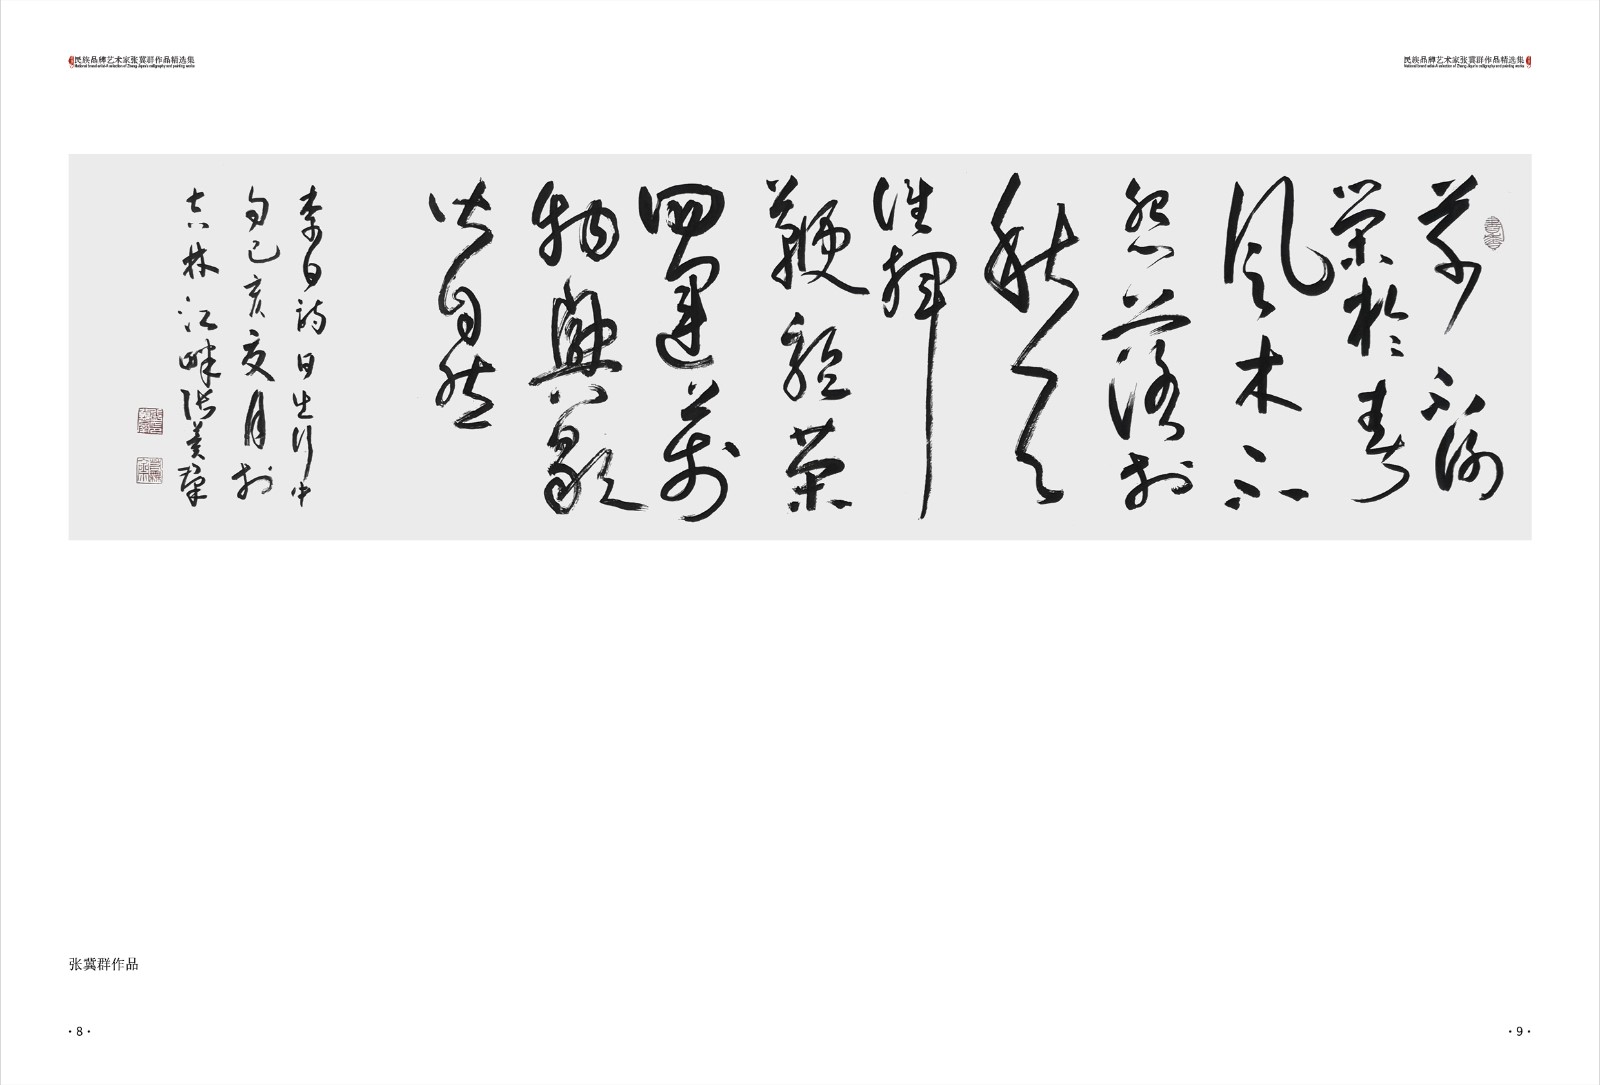 民族品牌艺术家张冀群作品精选集
National brand artist-A selection of Zhang Jiqun's calligraphy and painting works
民族品牌艺术家张冀群作品精选集
National brand artist-A selection of Zhang Jiqun's calligraphy and painting works
草不謝
榮於春
風木不
怨落於
秋天
誰揮
鞭驅策
四運萬
物興歇
皆自然
李白詩日出行中
句己亥夏月於
吉林江畔張冀群
张冀群作品
·8·
·9·